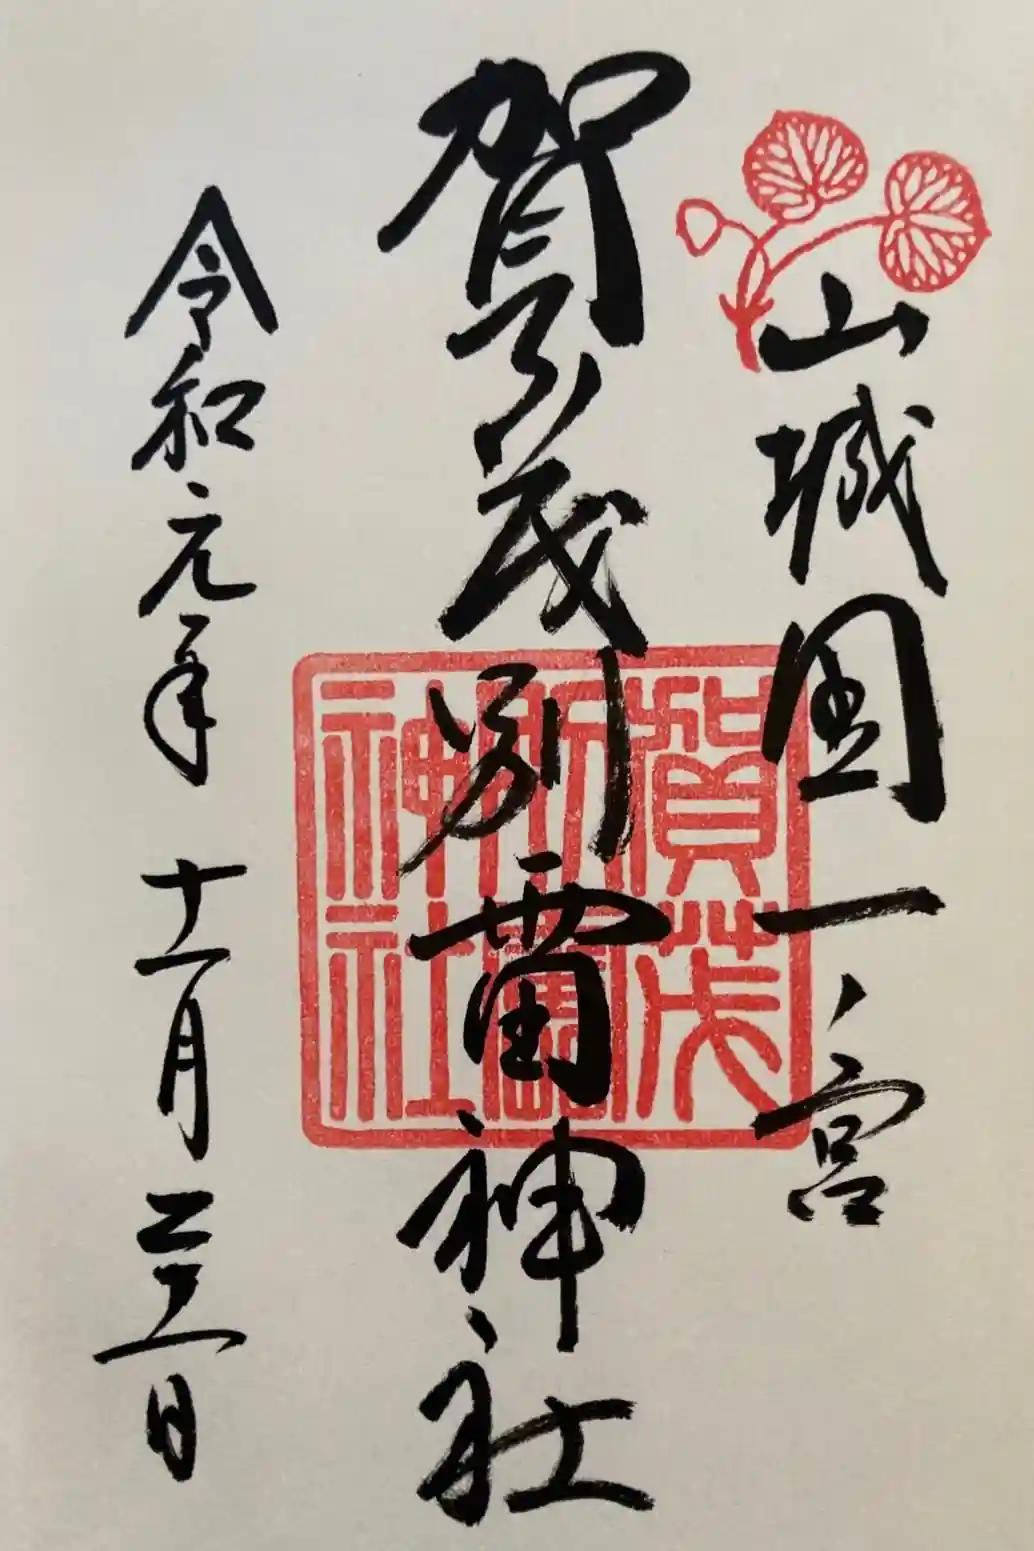 山城国一ノ宮
賀茂別雷神社
令和元年 十一月 二三日
賀茂
別雷
神社